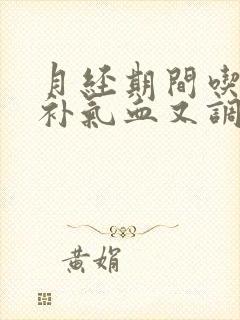 月经期間喫
补氣血又調
黄娟